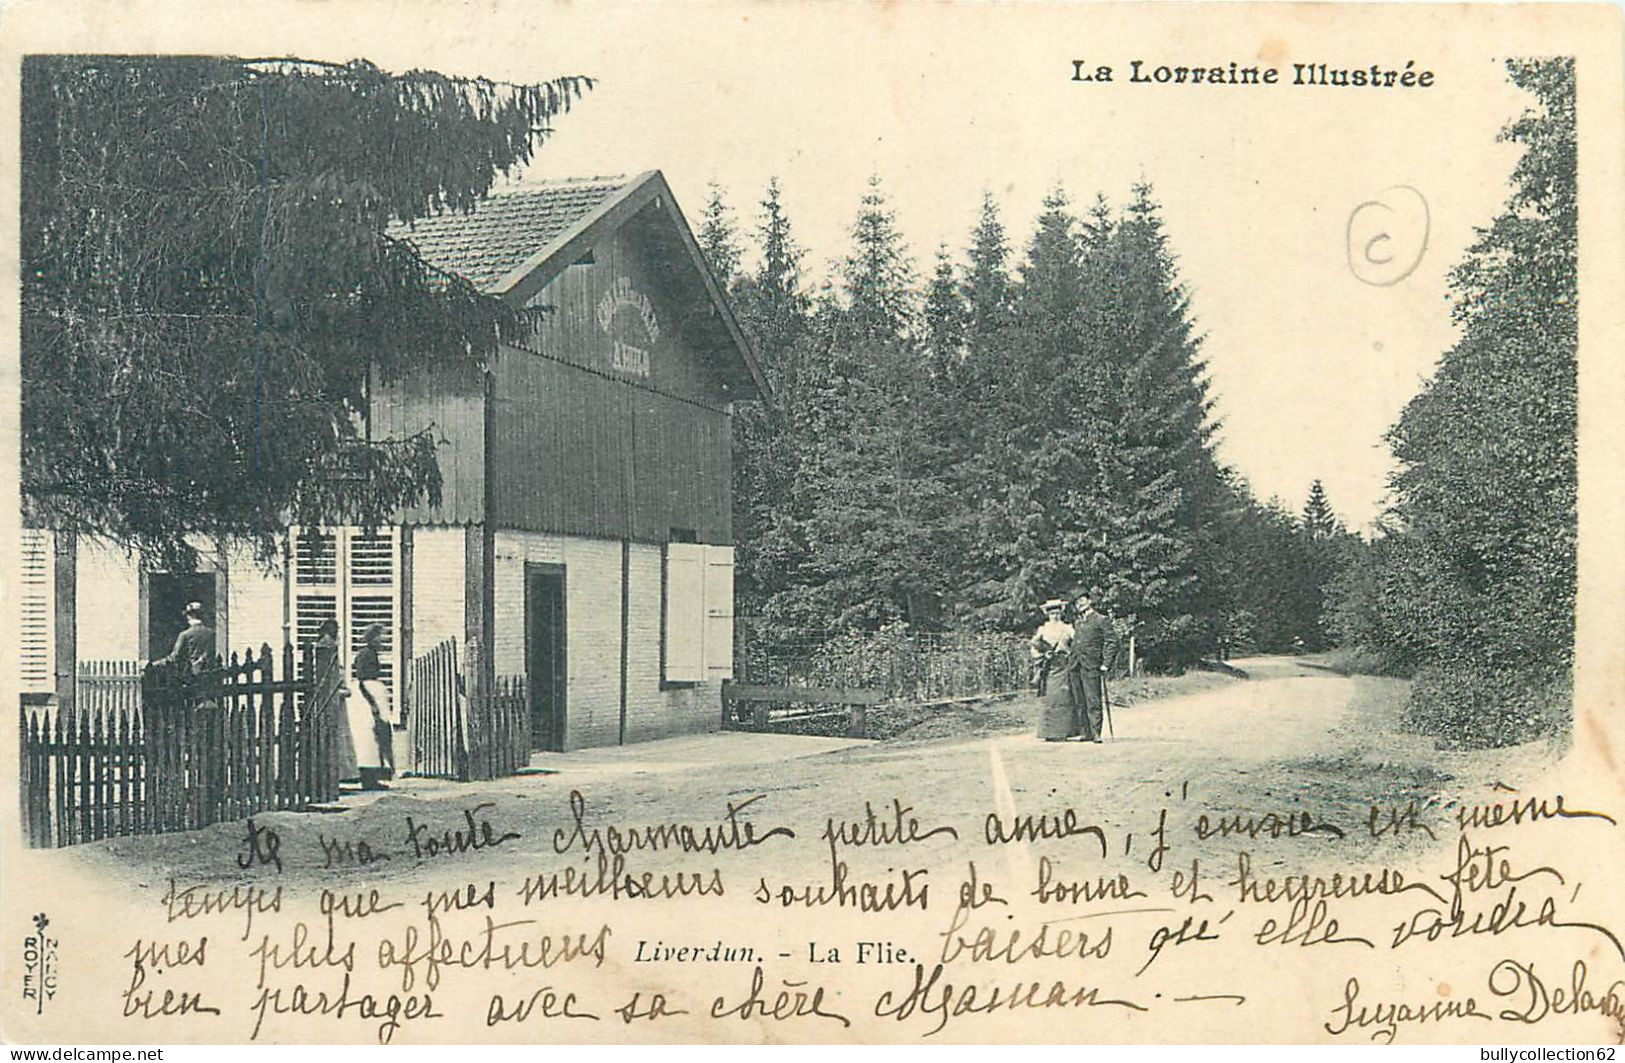 La Lorraine Illustrée
C
A ma toute charmante petite amie, j'envoie en même
temps que mes meilleurs souhaits de bonne et heureuse fête
mes plus affectueux Liverdun. - La Flie. baisers qu'elle voudra
bien partager avec sa chère Maman. —
Suzanne
ROYER
NANCY
delcampe.net
bullycollection62